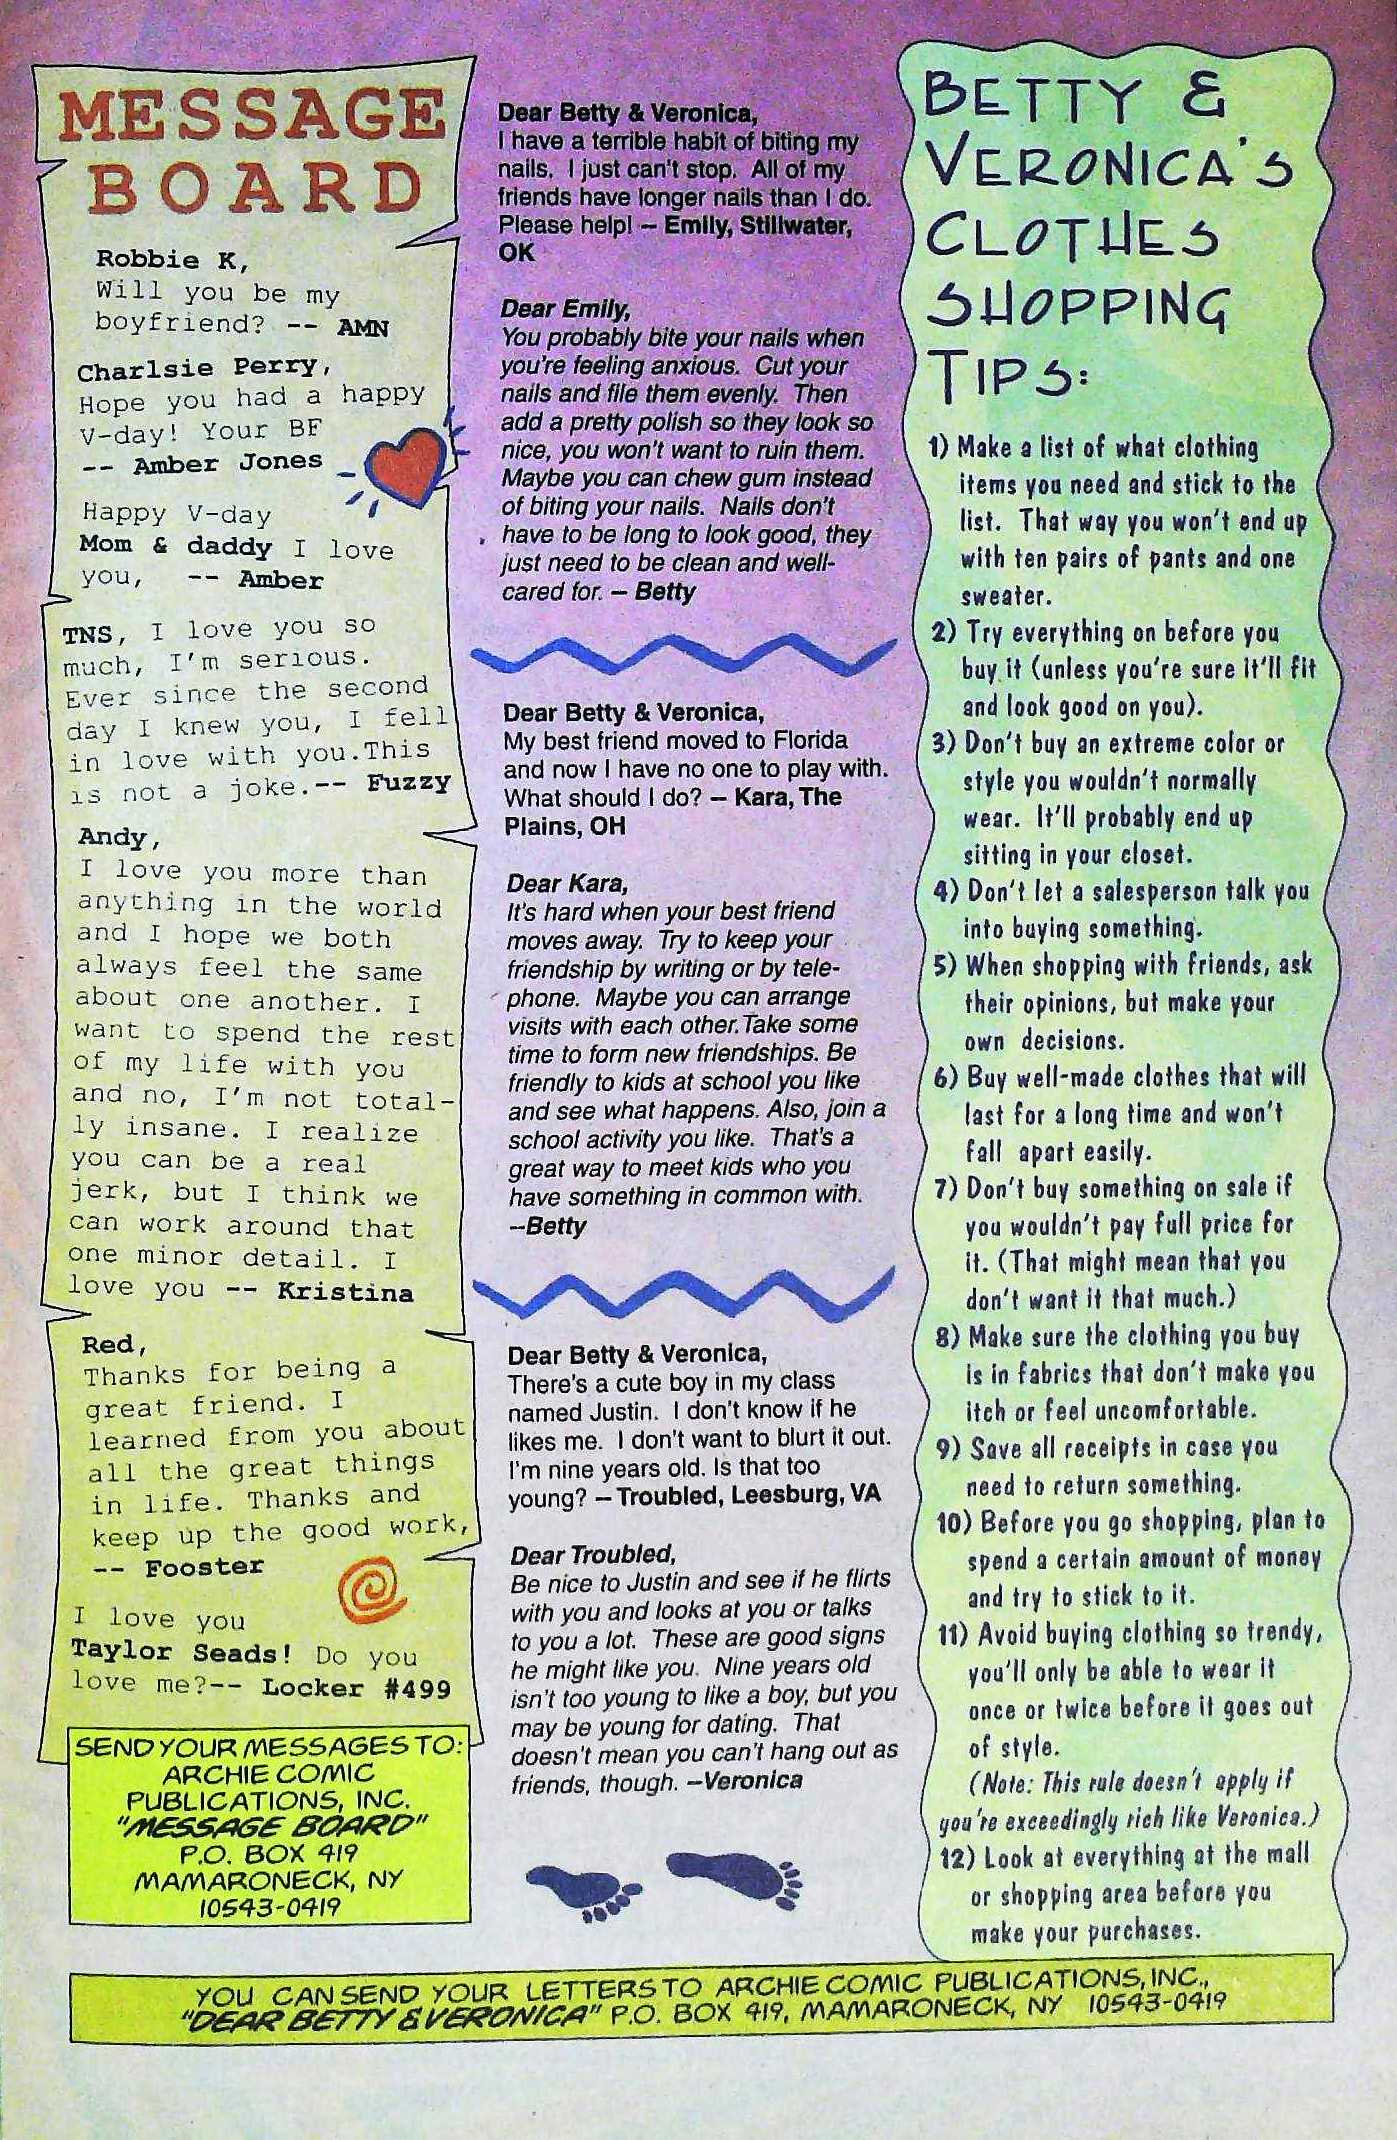 MESSAGE
BOARD
Robbie K,
Will you be my
boyfriend? -- AMN
Charlsie Perry,
Hope you had a happy
V-day! Your BF
-- Amber Jones
Happy V-day
Mom & daddy I love
you, -- Amber
TNS, I love you so
much, I'm serious.
Ever since the second
day I knew you, I fell
in love with you.This
is not a joke.-- Fuzzy
Andy,
I love you more than
anything in the world
and I hope we both
always feel the same
about one another. I
want to spend the rest
of my life with you
and no, I'm not total-
ly insane. I realize
you can be a real
jerk, but I think we
can work around that
one minor detail. I
love you -- Kristina
Red,
Thanks for being a
great friend. I
learned from you about
all the great things
in life. Thanks and
keep up the good work,
-- Fooster
I love you
Taylor Seads! Do you
love me?-- Locker #499
SEND YOUR MESSAGES TO:
ARCHIE COMIC
PUBLICATIONS, INC.
"MESSAGE BOARD"
P.O. BOX 419
MAMARONECK, NY
10543-0419
Dear Betty & Veronica,
I have a terrible habit of biting my
nails. I just can't stop. All of my
friends have longer nails than I do.
Please help! – Emily, Stillwater,
OK
Dear Emily,
You probably bite your nails when
you're feeling anxious. Cut your
nails and file them evenly. Then
add a pretty polish so they look so
nice, you won't want to ruin them.
Maybe you can chew gum instead
of biting your nails. Nails don't
have to be long to look good, they
just need to be clean and well-
cared for. – Betty
Dear Betty & Veronica,
My best friend moved to Florida
and now I have no one to play with.
What should I do? – Kara, The
Plains, OH
Dear Kara,
It's hard when your best friend
moves away. Try to keep your
friendship by writing or by tele-
phone. Maybe you can arrange
visits with each other. Take some
time to form new friendships. Be
friendly to kids at school you like
and see what happens. Also, join a
school activity you like. That's a
great way to meet kids who you
have something in common with.
–Betty
Dear Betty & Veronica,
There's a cute boy in my class
named Justin. I don't know if he
likes me. I don't want to blurt it out.
I'm nine years old. Is that too
young? – Troubled, Leesburg, VA
Dear Troubled,
Be nice to Justin and see if he flirts
with you and looks at you or talks
to you a lot. These are good signs
he might like you. Nine years old
isn't too young to like a boy, but you
may be young for dating. That
doesn't mean you can't hang out as
friends, though. –Veronica
BETTY &
VERONICA'S
CLOTHES
SHOPPING
TIPS:
1) Make a list of what clothing
items you need and stick to the
list. That way you won't end up
with ten pairs of pants and one
sweater.
2) Try everything on before you
buy it (unless you're sure it'll fit
and look good on you).
3) Don't buy an extreme color or
style you wouldn't normally
wear. It'll probably end up
sitting in your closet.
4) Don't let a salesperson talk you
into buying something.
5) When shopping with friends, ask
their opinions, but make your
own decisions.
6) Buy well-made clothes that will
last for a long time and won't
fall apart easily.
7) Don't buy something on sale if
you wouldn't pay full price for
it. (That might mean that you
don't want it that much.)
8) Make sure the clothing you buy
is in fabrics that don't make you
itch or feel uncomfortable.
9) Save all receipts in case you
need to return something.
10) Before you go shopping, plan to
spend a certain amount of money
and try to stick to it.
11) Avoid buying clothing so trendy,
you'll only be able to wear it
once or twice before it goes out
of style.
(Note: This rule doesn't apply if
you're exceedingly rich like Veronica.)
12) Look at everything at the mall
or shopping area before you
make your purchases.
YOU CAN SEND YOUR LETTERS TO ARCHIE COMIC PUBLICATIONS, INC.,
"DEAR BETTY & VERONICA" P.O. BOX 419, MAMARONECK, NY 10543-0419